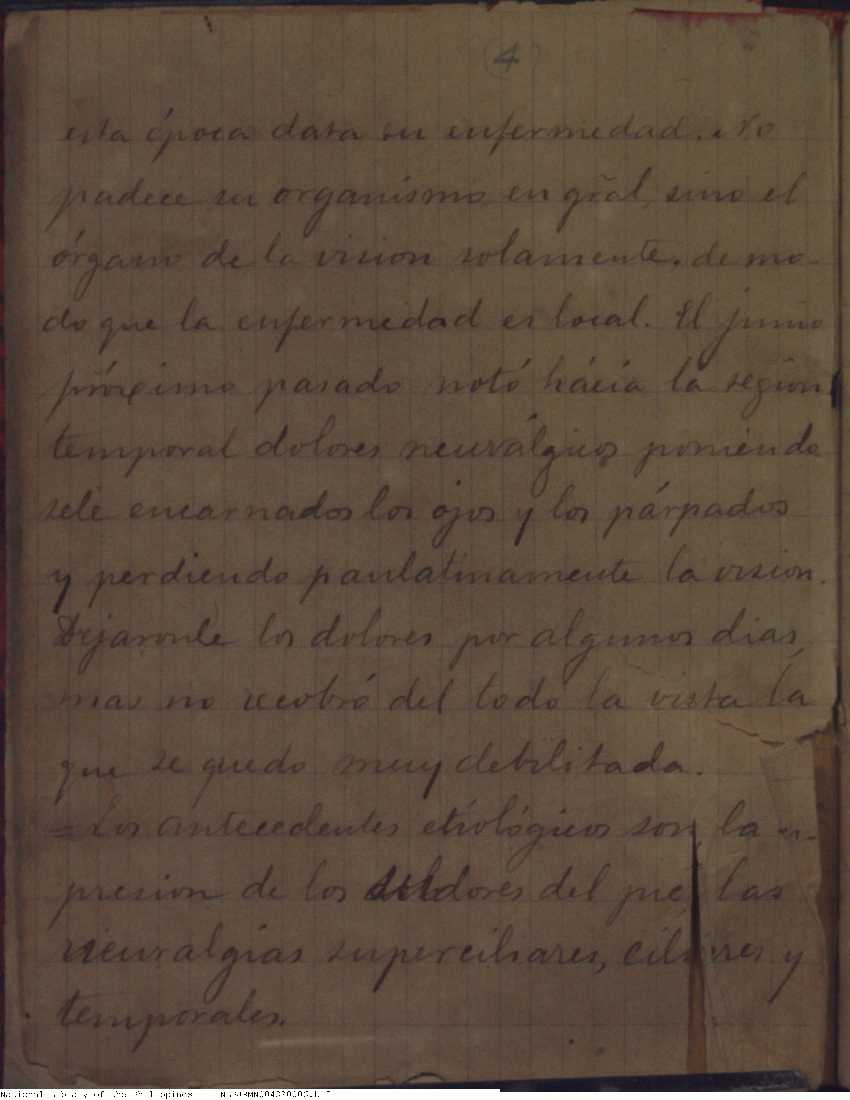 4
esta época data su enfermedad. No
padece su organismo en gral, sino el
órgano de la vision solamente, de mo-
do que la enfermedad es local. El junio
próximo pasado notó hácia la region
temporal dolores neurálgicos poniendo
sele encarnados los ojos y los párpados
y perdiendo paulatinamente la vision.
Dejaronle los dolores por algunos dias,
mas no recobró del todo la vista la
que se quedo muy debilitada.
= Los antecedentes etiológicos son la
presion de los sudores del pie las
neuralgias superciliares, ciliares y
temporales.
National Library of the Philippines